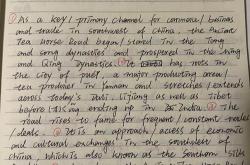 ① As a key / primary channel for commerce / business
and trade in Southwest of China, the ancient
tea horse Road began / started in the Tang
and Song dynasties and prospered in the Ming
and Qing Dynasties. ② It has roots in
the city of puer, a major producing area /
tea producer in Yunnan and stretches / extends
across today's Sichuan, Litiang as well as Tibet
before ending up in India. ③ The
road rises to fame for frequent / constant trades
/ deals. ④ It is an approach / access of economic
and cultural exchanges in the southwest of
China, which is also known as the Southern Silk